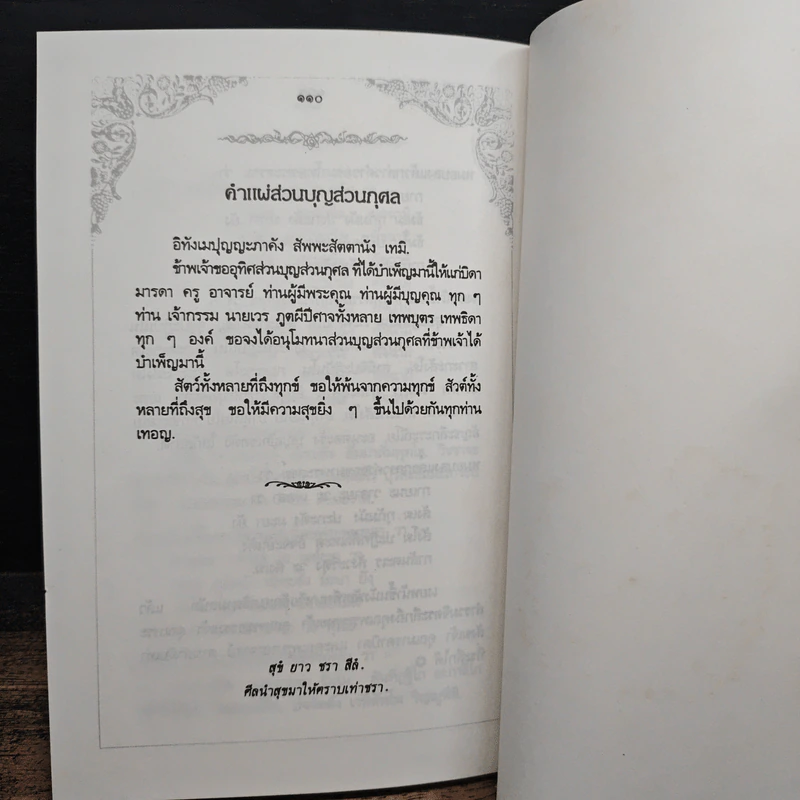 ๑๑๐
คำแผ่ส่วนบุญส่วนกุศล
อิทังเมปุญญะภาคัง สัพพะสัตตานัง เทมิ.
ข้าพเจ้าขออุทิศส่วนบุญส่วนกุศล ที่ได้บำเพ็ญมานี้ให้แก่บิดา
มารดา ครู อาจารย์ ท่านผู้มีพระคุณ ท่านผู้มีบุญคุณ ทุก ๆ
ท่าน เจ้ากรรม นายเวร ภูตผีปีศาจทั้งหลาย เทพบุตร เทพธิดา
ทุก ๆ องค์ ขอจงได้อนุโมทนาส่วนบุญส่วนกุศลที่ข้าพเจ้าได้
บำเพ็ญมานี้
สัตว์ทั้งหลายที่ถึงทุกข์ ขอให้พ้นจากความทุกข์ สัวต์ทั้ง
หลายที่ถึงสุข ขอให้มีความสุขยิ่ง ๆ ขึ้นไปด้วยกันทุกท่าน
เทอญ.
สุขํ ยาว ชรา สีลํ.
ศีลนำสุขมาให้ตราบเท่าชรา.